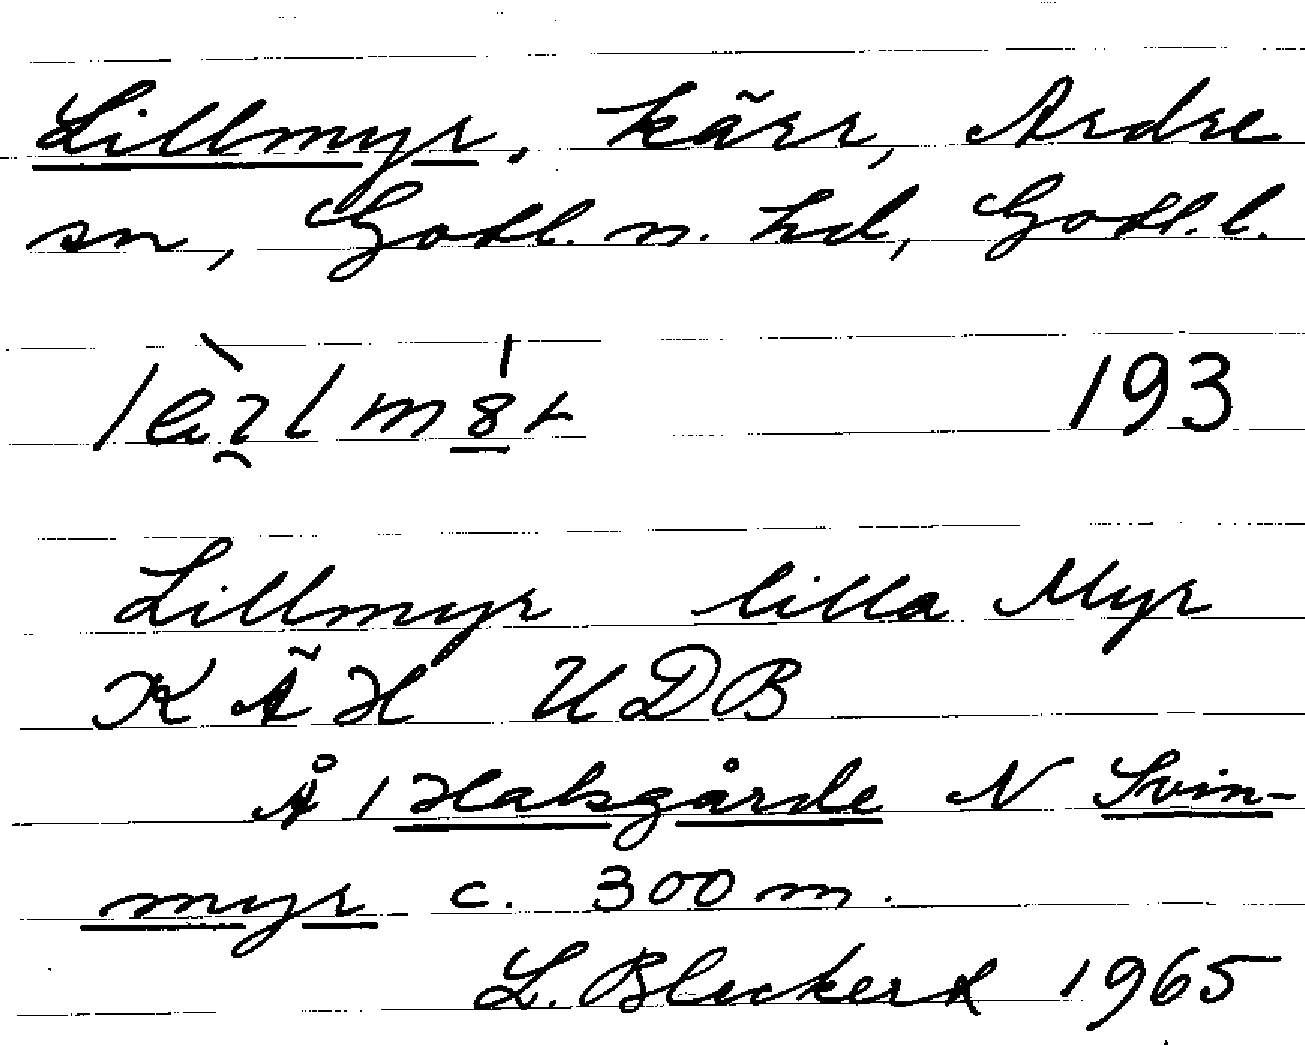 Lillmyr, kärr, Ardre
sn, Gotl. n. hd, Gotl. l.
193
Lillmyr lilla Myr
K Ä H U D B
Å 1 Halsgårde N Svin-
myr c. 300 m.
L. Bleckert 1965